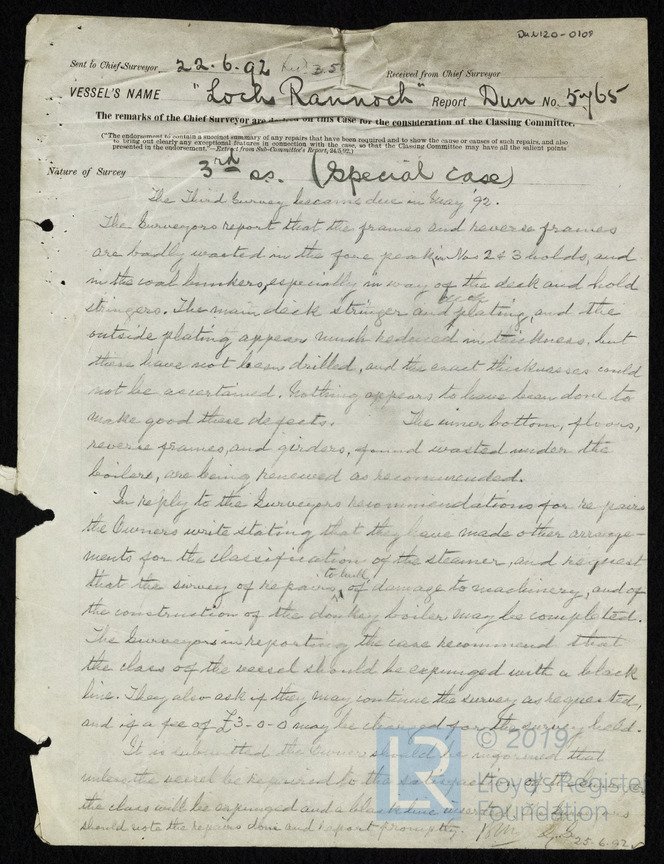 DUN120-0109
Sent to Chief Surveyor 22.6.92 Received from Chief Surveyor
VESSEL'S NAME "Loch Rannoch" Report Dun No. 5765
The remarks of the Chief Surveyor are on this Case for the consideration of the Classing Committee.
("The endorsement to contain a succinct summary of any repairs that have been required and to show the cause or causes of such repairs, and also
to bring out clearly any exceptional features in connection with the case, so that the Classing Committee may have all the salient points
presented in the endorsement."—Extract from Sub-Committee's Report, 24.5.92.)
Nature of Survey 3rd ss. (Special Case)
The Third Survey became due in May '92.
The Surveyors report that the frames and reverse frames
are badly wasted in the fore peak, in Nos 2 & 3 holds, and
in the coal bunkers, especially in way of the deck and hold
stringers. The main deck stringer and deck plating, and the
outside plating appear much reduced in thickness, but
these have not been drilled, and the exact thicknesses could
not be ascertained. Nothing appears to have been done to
make good these defects. The inner bottom, floors,
reverse frames, and girders, found wasted under the
boilers, are being renewed as recommended.
In reply to the Surveyors recommendations for repairs
the Owners write stating that they have made other arrange-
ments for the classification of the steamer, and request
that the survey of repairs to bulk, of damage to machinery, and of
the construction of the donkey boiler may be completed.
The Surveyors in reporting the case recommend that
the class of the vessel should be expunged with a black
line. They also ask if they may continue the survey as requested,
and if a fee of £3-0-0 may be charged for the survey held.
It is submitted the Owners should be informed that
unless the vessel be repaired to the satisfaction of the
the class will be expunged and a black line
should note the repairs done and report promptly.
25.6.92
© 2019
LR
Lloyd's Register
Foundation